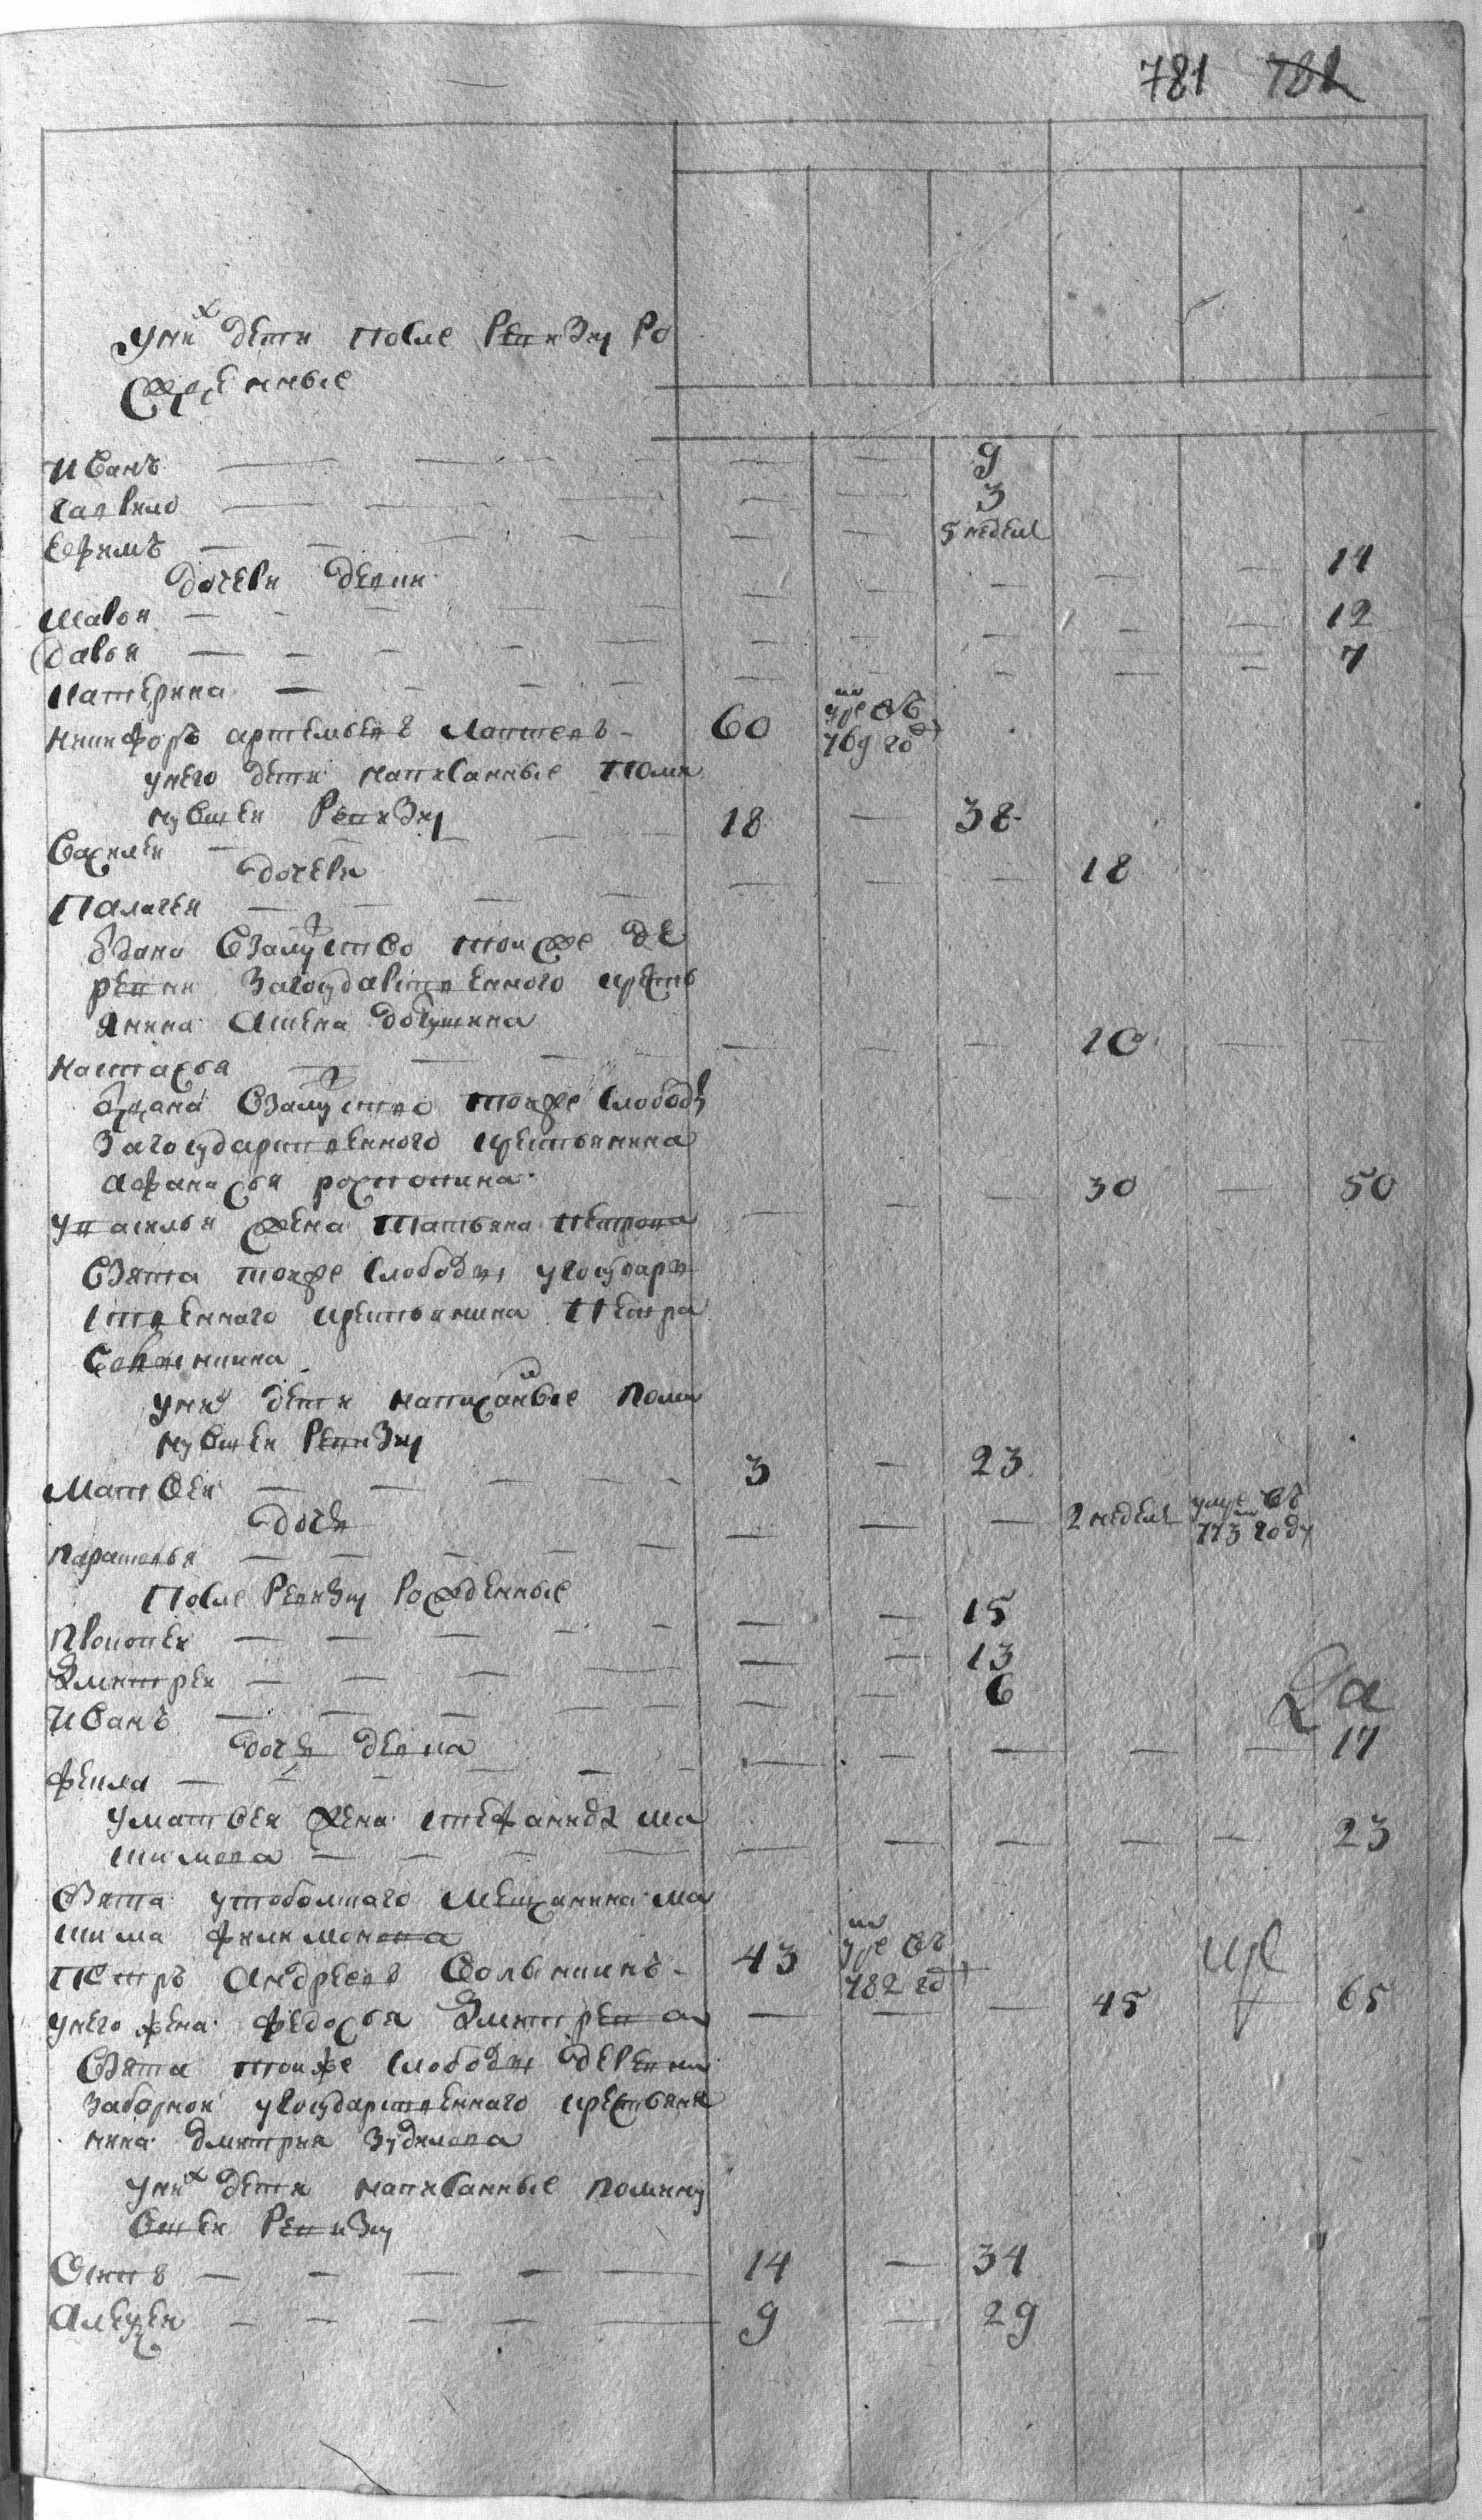 781 782
у них дети после ревизии ро
жденные
Иванъ — — — — — — 9
Гаврило — — — — — 3
Ефимъ — — — — — — 5 недель
дочери девки
Мавра — — — — — — 14
Дарья — — — — — — 12
Катерина — — — — — — 7
Никифоръ Артемьевъ Лаптевъ 60 умре въ 769 году
у него дети написанные в поми
нувшей ревизии
Василей — — — 18 — 38
дочери
Палагея — — — — — — 18
отдана в замужство той же де
ревни за государственного кресть
янина
Настасья — — — — — 10 — —
отдана в замужство той же слободы
за государственного крестьянина
Афанасья
у Василья жена Татьяна Петрова — — — 30 — 50
взята той же слободы у государ
ственного крестьянина Петра
у них дети написанные в поми
нувшей ревизии
Матвей — — — — 3 — 23
дочь
Парасковья — — — — — — — — 2 недель умре въ 773 году
после ревизии рожденные
Прокопей — — — — — — — 15
Дмитрей — — — — — — 13
Иванъ — — — — — — 6
дочь девка
Фекла — — — — — — — — — — — 17
у Матвея жена Степанида Ма
ксимова — — — — — — — — — 23
взята у тобольского мещанина Ма
ксима Филимонова
Петръ Андреевъ 43 умре въ 782 году
у него жена Федосья Дмитрева — — — 45 — 65
взята той же слободы деревни
Заборной у государственного крестьяни
нина Дмитрия Зуд­илова
у них дети написанные в помину
вшей ревизии
Осипъ — — — — — 14 — 34
Алексей — — — — — 9 — 29